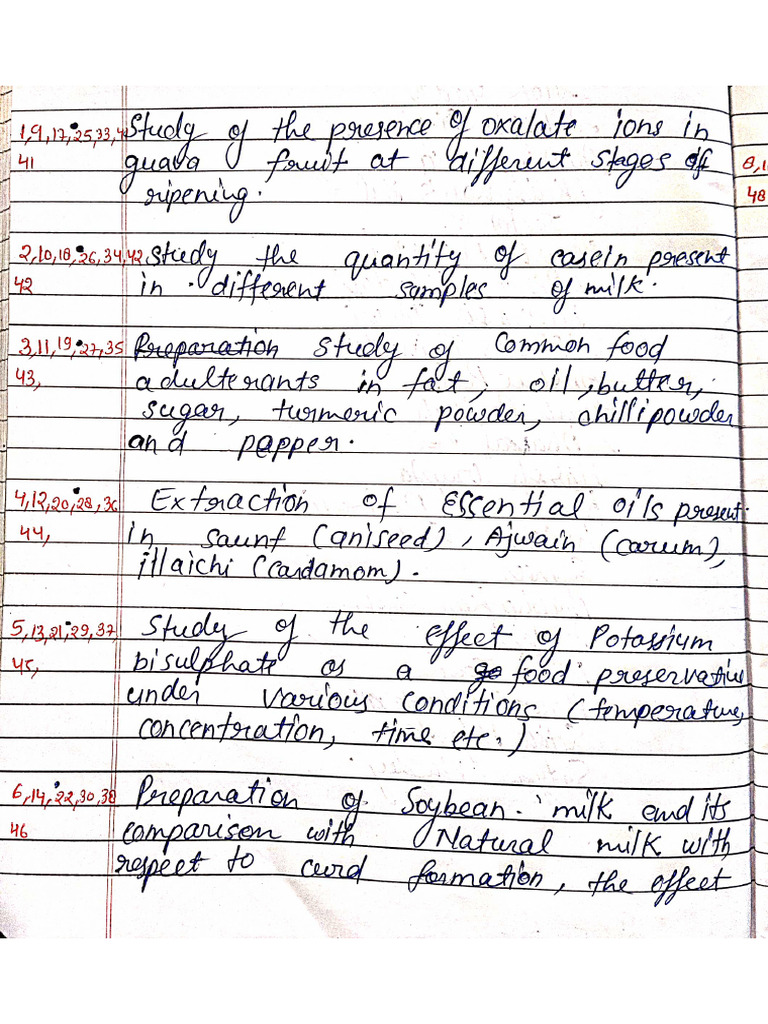 1,9,17,25,33,4 Study of the presence of oxalate ions in
41 guava fruit at different stages of
ripening.
2,10,18,26,34,42 Study the quantity of casein present
42 in different samples of milk.
3,11,19,27,35 Preparation Study of Common food
43, adulterants in fat, oil, butter,
sugar, turmeric powder, chillipowder
and papper.
4,12,20,28,36 Extraction of Essential oils present
44, in saunf (aniseed), Ajwain (carum),
illaichi (cardamom).
5,13,21,29,37 Study of the effect of Potassium
45, bisulphate as a food preservative
under various conditions (temperature,
concentration, time etc.)
6,14,22,30,38 Preparation of Soybean milk and its
46 comparison with Natural milk with
respect to curd formation, the effect
8,1
48